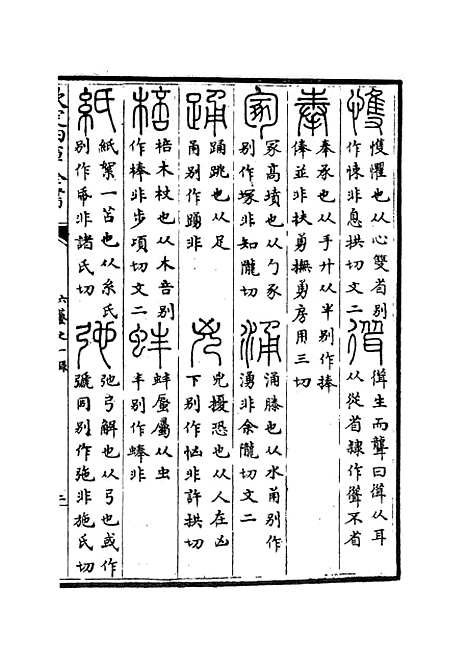 愯
愯懼也从心雙省別
作悚非息拱切文二
聳
聳生而聾曰聳从耳
从從省隸作聳不省
奉
奉承也从手廾从半別作捧
俸並非扶勇撫勇房用三切
冢
冢高墳也从勹豖
別作塚非知隴切
涌
涌滕也从水甬別作
湧非余隴切文二
踊
踊跳也从足
甬別作踴非
兇
兇擾恐也从人在凶
下別作恟非許拱切
棓
棓木杖也从木咅別
作棒非步項切文二
蚌
蚌蜃屬从虫
丰別作蜯非
紙
紙絮一苫也从糸氏
別作帋非諸氏切
弛
弛弓解也从弓也或作
𢐋同別作㢮非施氏切
欽定四庫全書
六藝之一錄
三